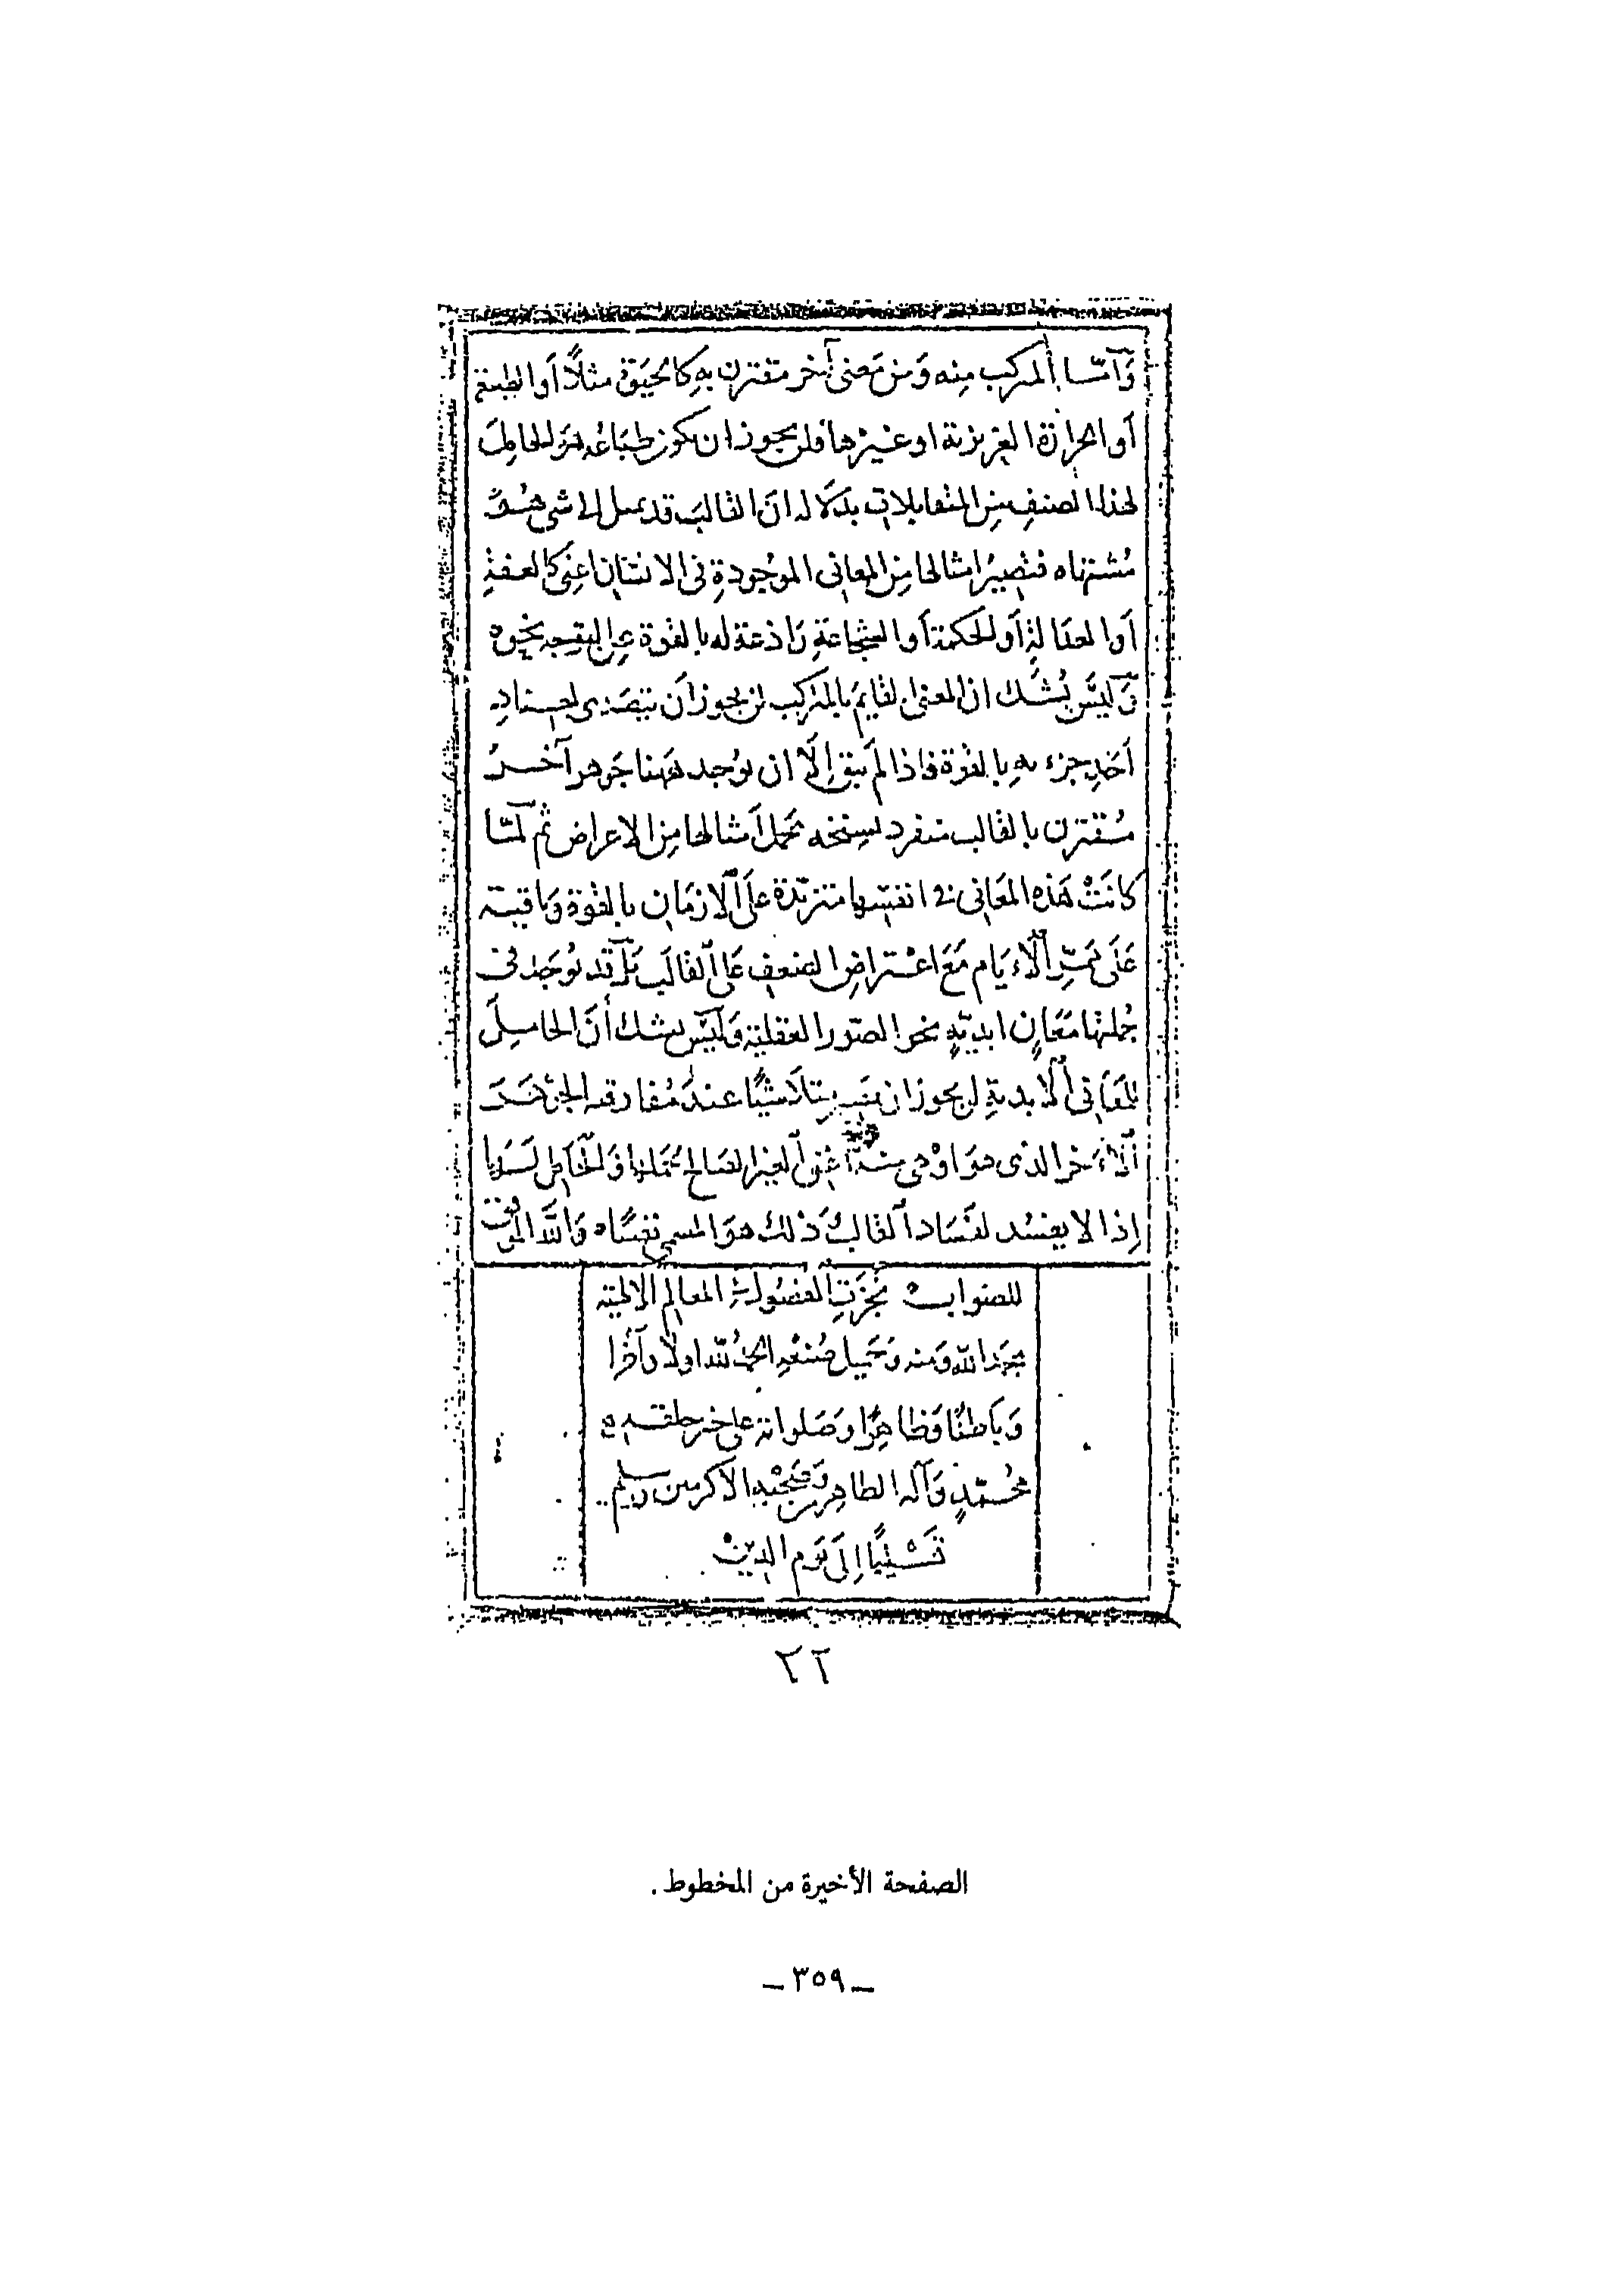 وَأمّا المركب منه وَمن مَعنى آخر مقترن بهِ كالحيَوة مثلاً أو الطبيعة
أو الحرارة الغريزية او غيرها فلن يجوز ان يكون طبَاعُه هوَ الحامِلَ
لهذا الصنفِ مِن المتقابلات بدَلالة انَّ القالبَ قد يميل الى شئ هُوَ
مُشتهاه فتصيرُ امثالها مِن المعانى الموجُودةِ فى الانسَان اعنِى كالعفةِ
أو العدَالةِ أو الحكمة أو الشجاعَةِ رَادعَة له بالقوة عن التوجه نحوه
وَليسَ يُشَك ان المعنى القايم بالمركب لن يجوز أن يتصَدى لعِنادِ
أحَدِ جزءيهِ بالقوة فاذا لم يبق إلّا ان يوُجد هٰهنا جَوهر آخَرُ
مُقترن بالقالب منفرد لسِنخه تحمل أمثالها مِن الاعراض ثم لمّا
كانَتْ هَذِه المعَانى فى انفسِها متزيّدة علَى الازمَان بالقوة وَباقية
عَلى ممرِّ الأيَام مَعَ اعتراضِ الضعفِ عَلى القالَب بَل قد يوُجَد فى
جُملتها مَعَانٍ ابديّةٍ نحو الصّور العقلية وَليسَ يشك أنَّ الحامِلَ
للمعَانى الأبديةِ لن يجوز ان يصير متلاشيًا عندَ مُفارقة الجزء
الآخر الذى هوَ اوْهى منه
إذا لا يفسُد لفسَاد القالب وَذلك هوَ المسمى نفسًا وَالله الموفق
للصَواب نجزَتِ الفصُول فى المعالم الالهية
بحمد الله وَمنه وَجَميل صُنعهِ الحمدُ لله اولاً وآخرًا
وَبَاطنًا وَظاهِرًا وصَلواته على خير خلقه
محُمّدٍ وَآله الطاهِرين وَصَحبْهِ الاكرمين وسلم
تَسْلِيمًا إلى يَوم الدين
٢٢
الصفحة الأخيرة من المخطوط .
_ ٣٥٩ _